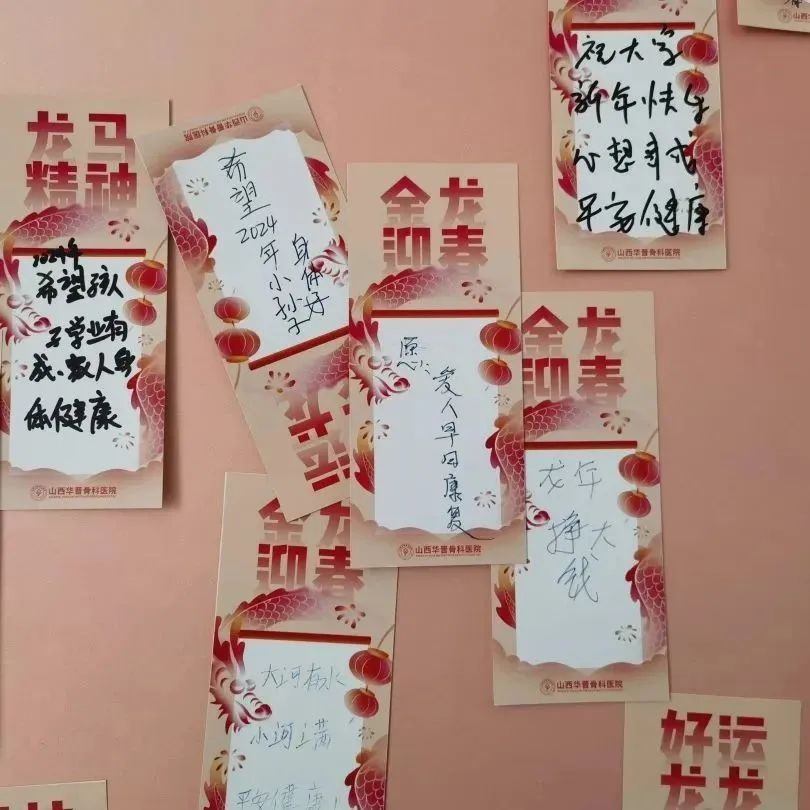 龙马
精神
2024年
希望孩人
子学业有
成、家人身
体健康
山西华晋骨科医院
山西华晋骨科医院
希望
2024年小孙子
身体好
金龙
迎春
愿
爱人早日康复
山西华晋骨科医院
祝大家
新年快乐
心想事成
平安健康
山西华晋骨科医院
金龙
迎春
龙年
挣大
钱
山西华晋骨科医院
金龙
迎春
大河有水
小河满
平安健康
好运
龙龙